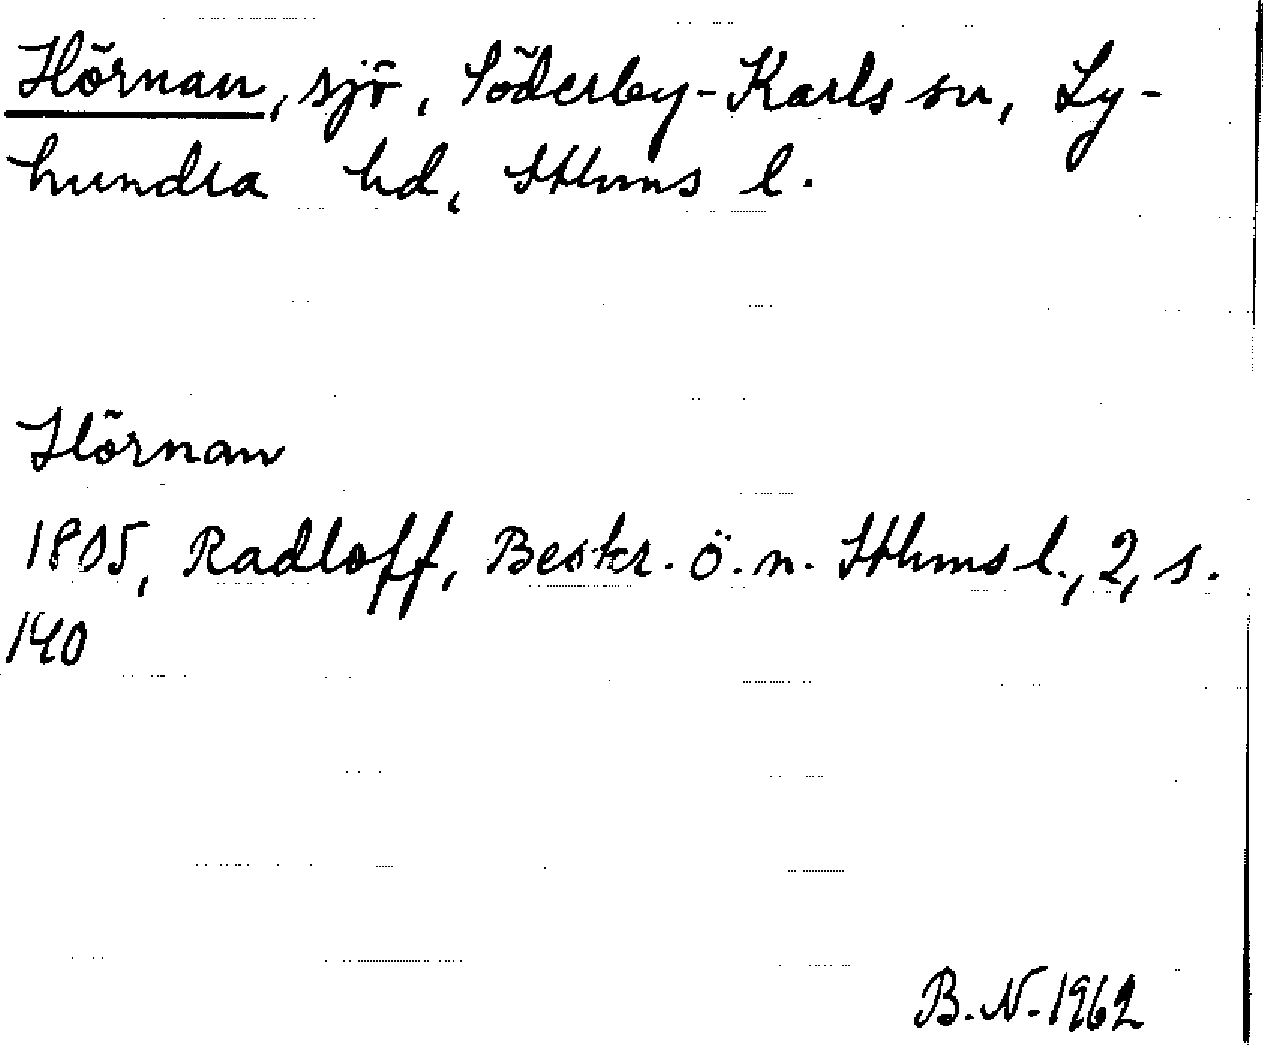 Hörnan, sjö, Söderby-Karls sn, Ly-
hundra hd, Sthms l.
Hörnan
1805, Radloff, Beskr. ö. n. Sthms l., 2, s.
140
B. N. 1962